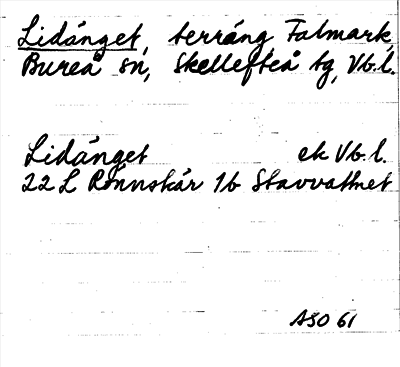 Lidänget, terräng, Falmark,
Bureå sn, Skellefteå tg, Vb.l.
Lidänget ek Vb.l.
22 L Rönnskär 1b Stavvattnet
ASO 61